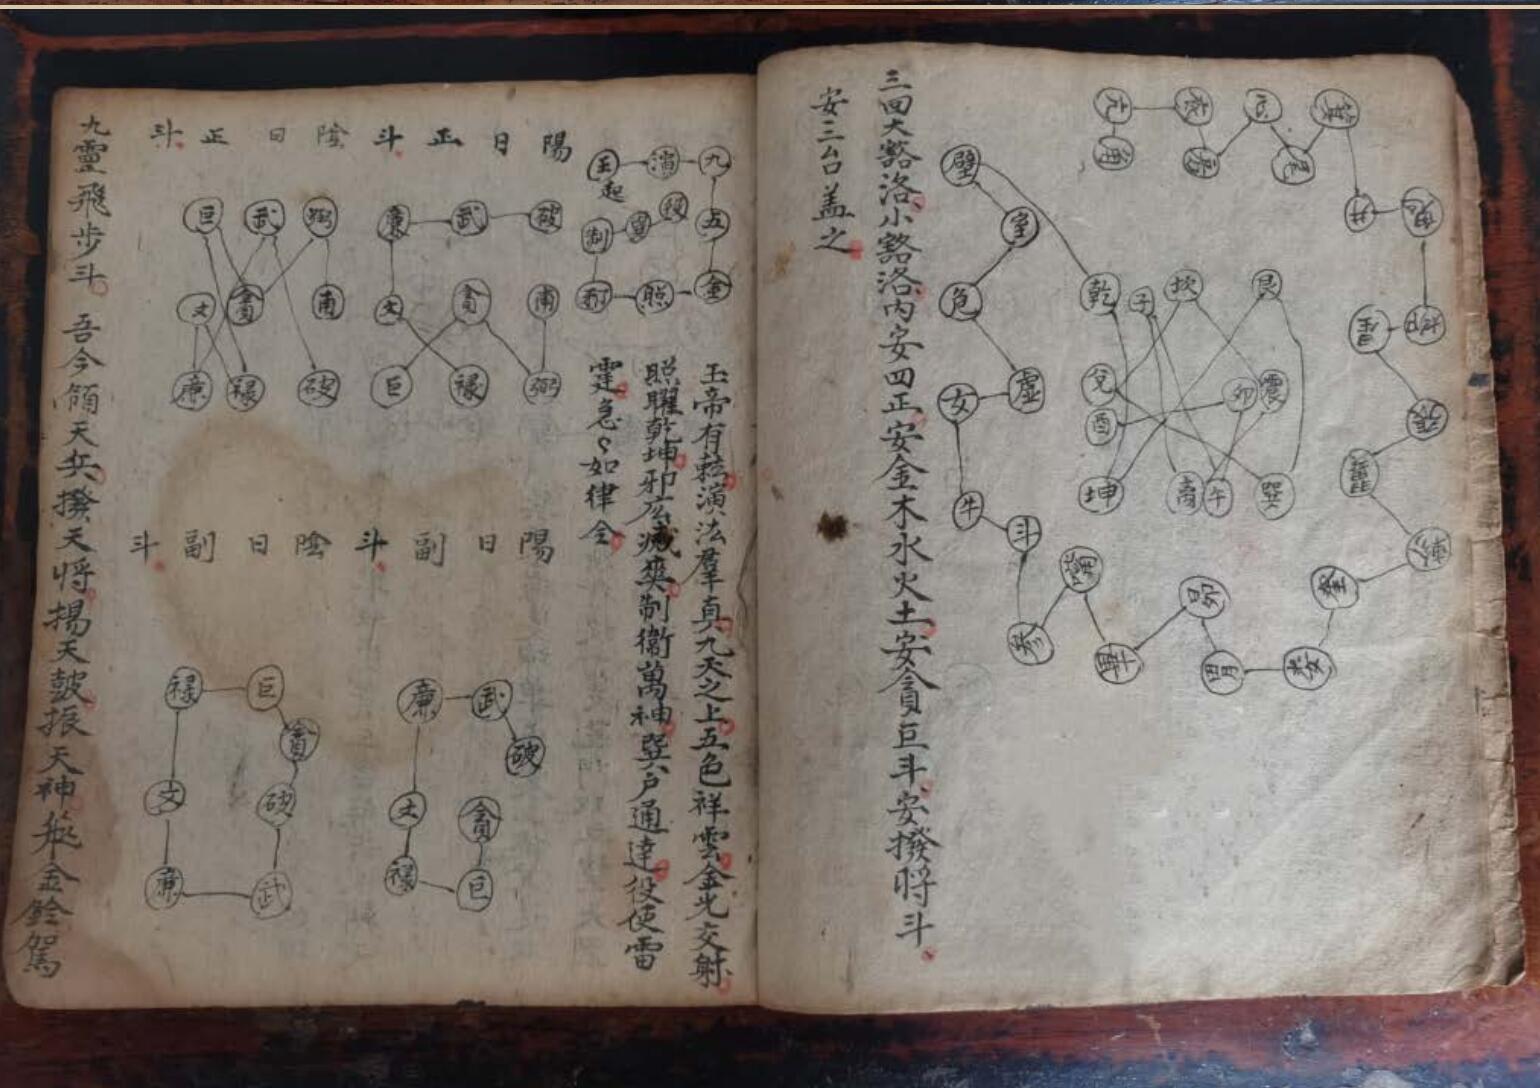 亢 氐 心 箕
角 房 尾
井 鬼
柳
張
翼
軫
奎
婁
胃
昴
畢
參
斗
牛
女 虛
危
室
壁
乾 子 坎 艮
兌 卯 震
酉
坤 离 午 巽
三回大豁洛小豁洛内安四正安金木水火土安貪巨斗安撥將斗
安三台盖之
玉 演 九
起
制 五
照 金
玉帝有𠡠演法羣真九天之上五色祥雲金光交射
照耀乾坤邪広滅爽制衛萬神巽户通達役使雷
霆急々如律令
陽日正斗 陰日正斗
廉 武 破
文 貪 甫
巨 祿 弼
巨 武 弼
文 貪 甫
廉 祿 破
陽日副斗 陰日副斗
廉 武 破
文 貪
祿 巨
祿 巨 貪
文 破
廉 武
九靈飛步斗 吾今領天兵撥天將揚天皷振天神 金鈴駕